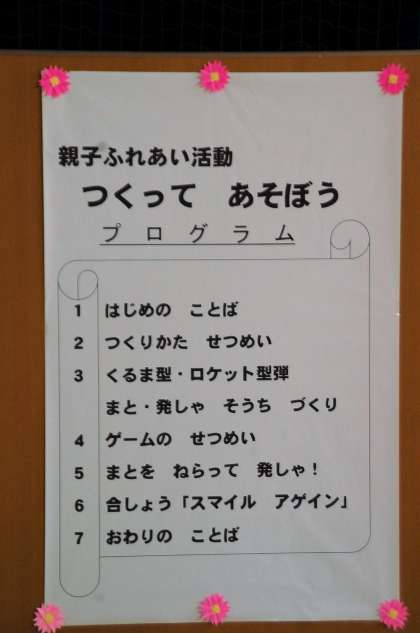 親子ふれあい活動
つくって　あそぼう
プ　ロ　グ　ラ　ム
1　はじめの　ことば
2　つくりかた　せつめい
3　くるま型・ロケット型弾
まと・発しゃ　そうち　づくり
4　ゲームの　せつめい
5　まとを　ねらって　発しゃ！
6　合しょう「スマイル　アゲイン」
7　おわりの　ことば